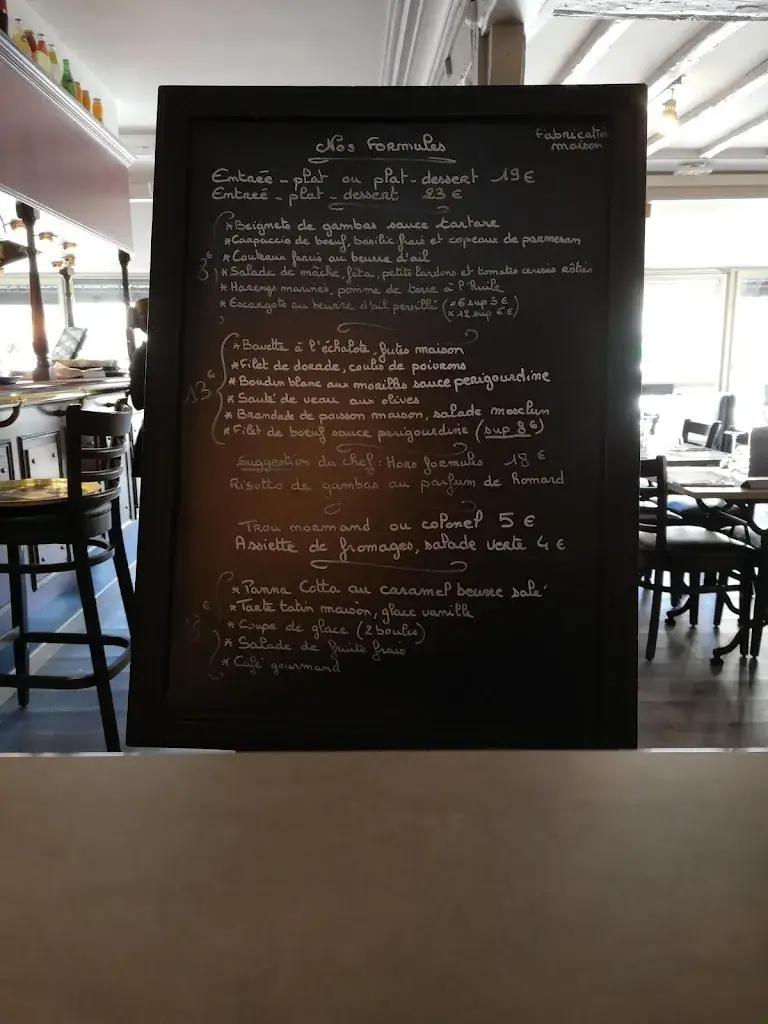 Nos Formules
Fabrication
maison
Entrée - plat ou plat - dessert 19 €
Entrée - plat - dessert 23 €
* Beignets de gambas sauce tartare
* Carpaccio de boeuf, basilic frais et copeaux de parmesan
* Couteaux farcis au beurre d'ail
* Salade de mâche, féta, petits lardons et tomates cerises rôties
* Harengs marinés, pomme de terre à l'huile
* Escargots au beurre d'ail persillé (x 6 sup 3 €
x 12 sup 6 €)
13 €
* Bavette à l'échalote, frites maison
* Filet de dorade, coulis de poivrons
* Boudin blanc aux morilles sauce perigourdine
* Sauté de veau aux olives
* Brandade de poisson maison, salade mesclun
* Filet de boeuf sauce perigourdine (sup 8 €)
Suggestion du chef : Hors formules 18 €
Risotto de gambas au parfum de homard
Trou normand ou colonel 5 €
Assiette de fromages, salade verte 4 €
* Panna Cotta au caramel beurre salé
* Tarte tatin maison, glace vanille
* Coupe de glace (2 boules)
* Salade de fruits frais
* Café gourmand